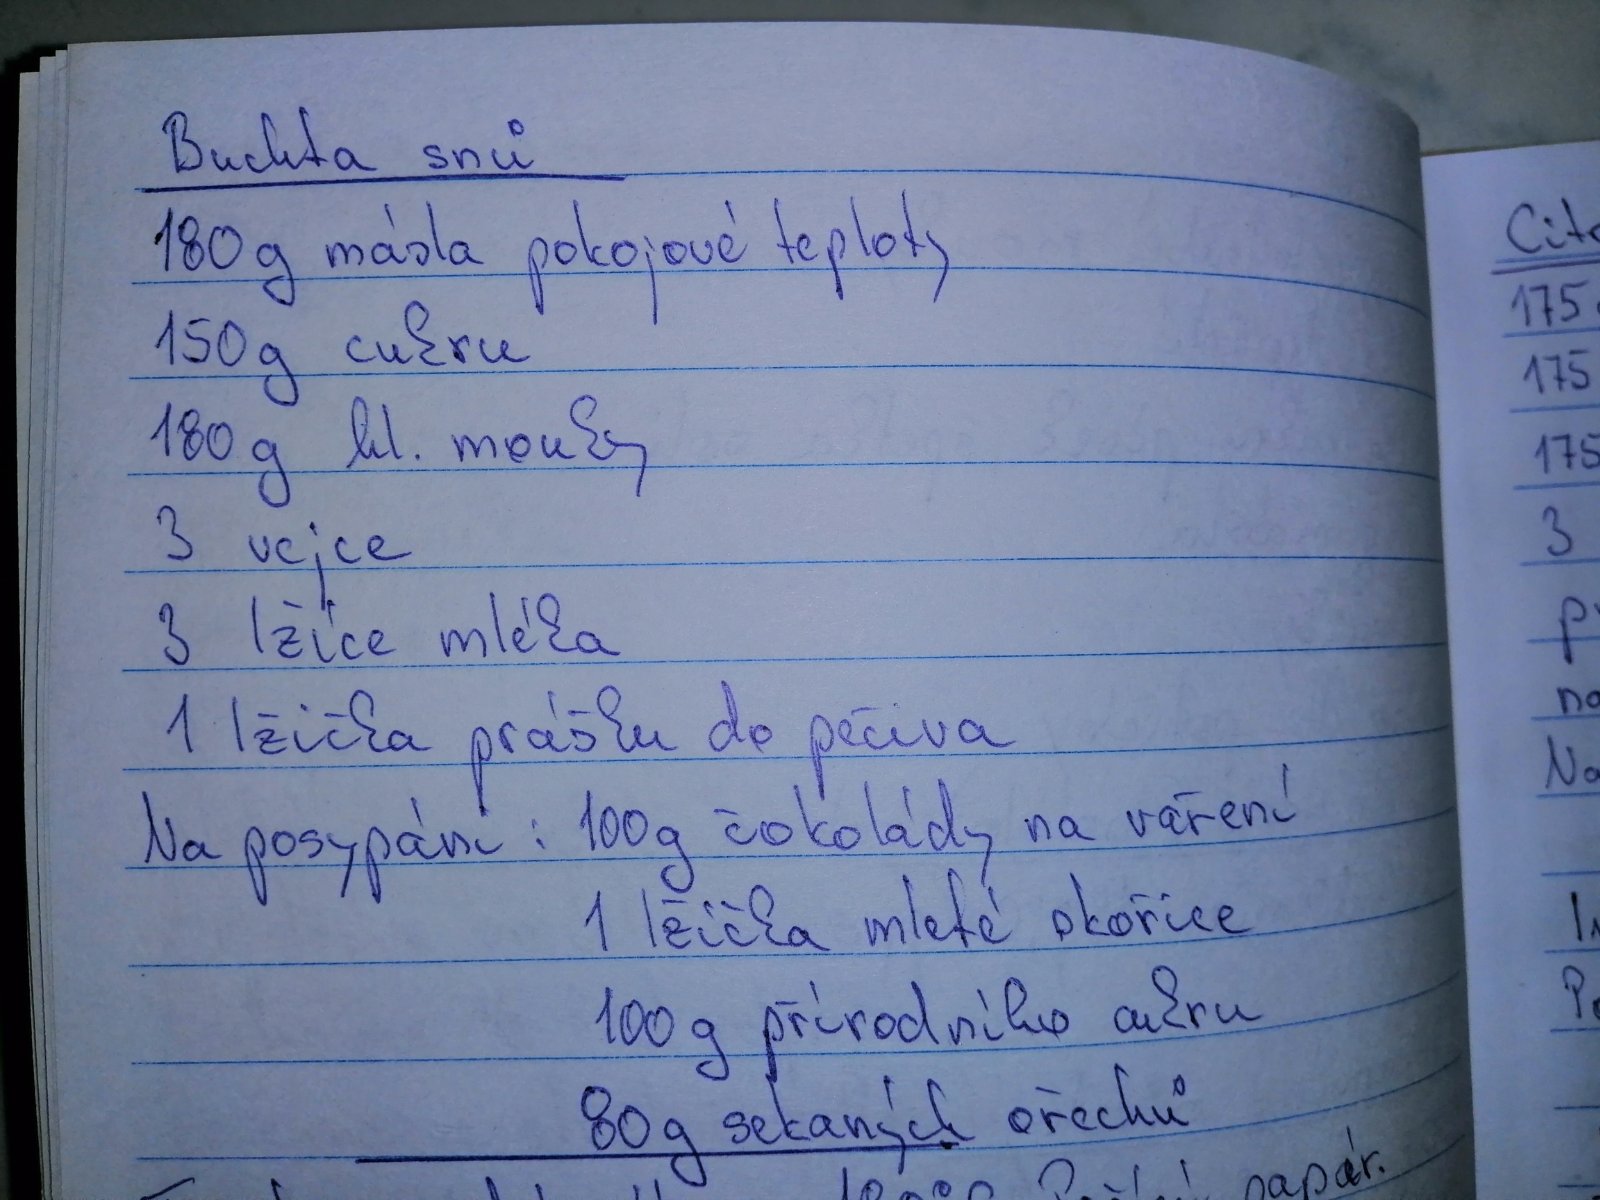 Buchta snů
180g másla pokojové teploty
150g cukru
180g hl. mouky
3 vejce
3 lžíce mléka
1 lžička prášku do pečiva
Na posypání: 100g čokolády na vaření
1 lžička mleté skořice
100g přírodního cukru
80g sekaných ořechů
papár.
175
175
175
3